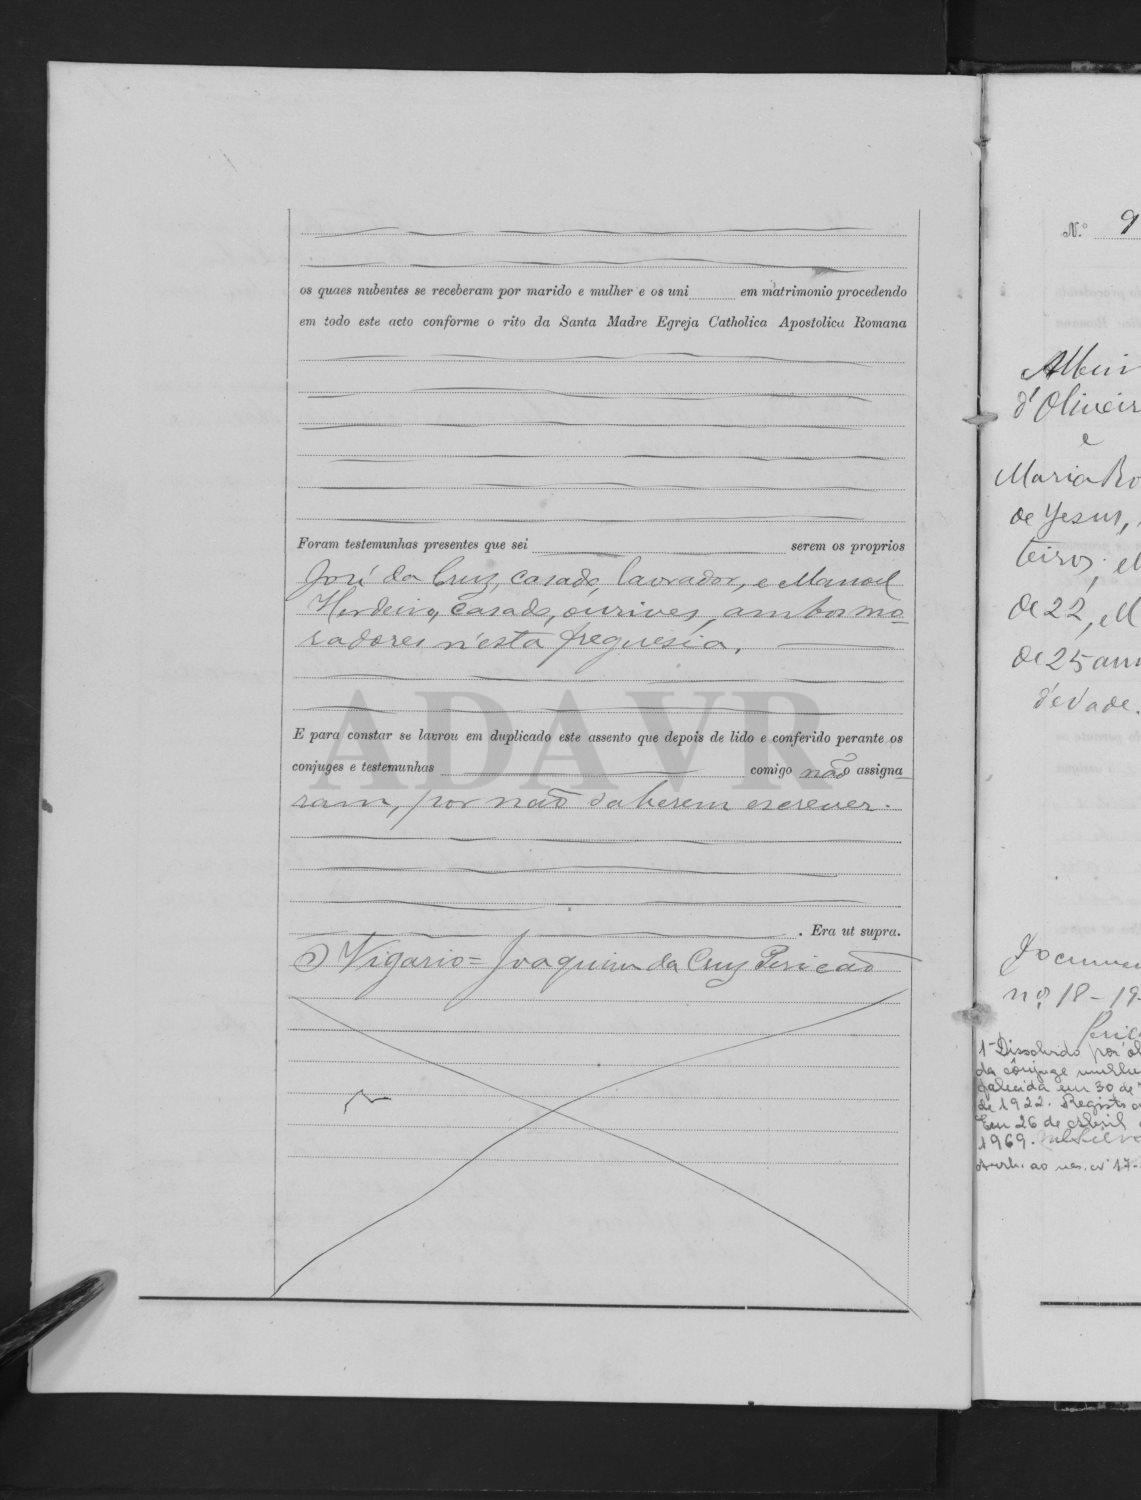 os quaes nubentes se receberam por marido e mulher e os uni em matrimonio procedendo
em todo este acto conforme o rito da Santa Madre Egreja Catholica Apostolica Romana
Foram testemunhas presentes que sei serem os proprios
José da Cruz, casado, lavrador, e Manoel
Herdeiro, casado, ourives, ambos mo=
radores n'esta freguesia.
ADAVR
E para constar se lavrou em duplicado este assento que depois de lido e conferido perante os
conjuges e testemunhas comigo não o assigna=
ram, por não saberem escrever.
. Era ut supra.
O Vigario = Joaquim da Cruz Pericão
N.º 9
Albin
d'Oliveir
e
Maria Ro
de Jesus,
teiros; el
de 22, el
de 25 ann
d'edade.
Documen
nº 18-19-
Peric
1- Dissolvido por ob
da cônjuge mulhe
falecida em 30 de
de 1922. Registo
Em 26 de Abril
1969.
ao nº 17-